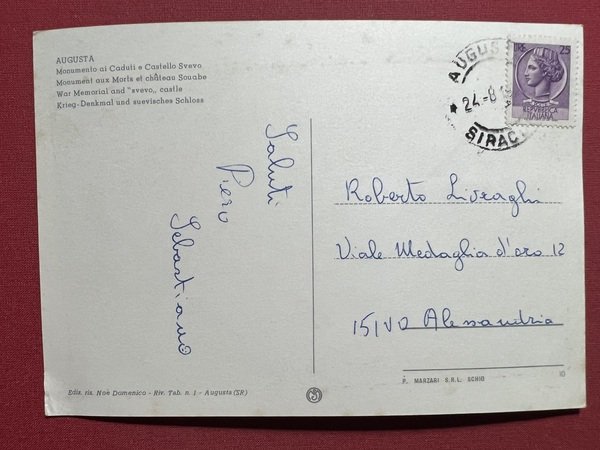 AUGUSTA
Monumento ai Caduti e Castello Svevo
Monument aux Morts et château Souabe
War Memorial and "svevo,, castle
Krieg-Denkmal und suevisches Schloss
AUGUS
24.-8
SIRAC
LIRE 25
REPUBBLICA
ITALIANA
Saluti
Piero
Sebastiano
Roberto Livraghi
Viale Medaglia d'oro 12
15100 Alessandria
Ediz. ris. Noè Domenico - Riv. Tab. n. 1 - Augusta (SR)
P. MARZARI S.R.L. SCHIO